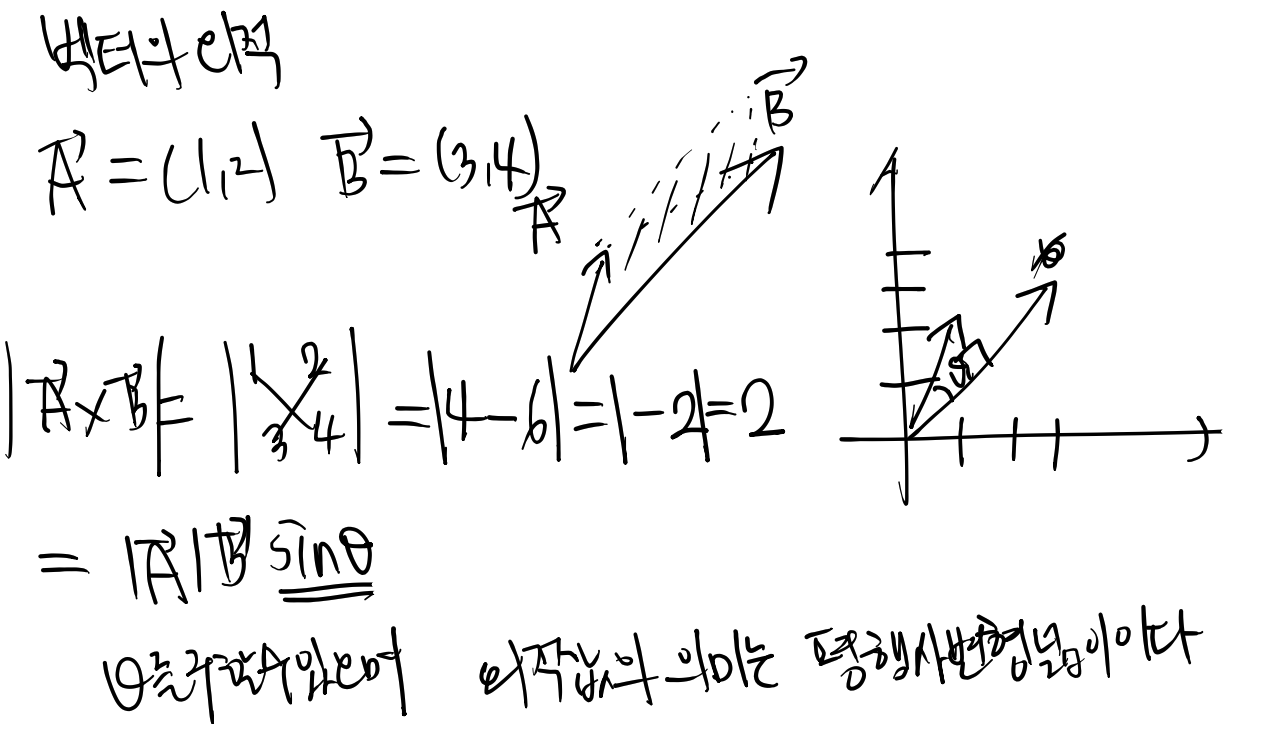 벡터의 외적
A = (1,2) B = (3,4)
A
B
|A×B| = |1 2 3 4| = |4-6| = |-2| = 2
θ
= |A||B| sinθ
θ를 구할수있으며 외적값의 의미는 평행사변형넓이이다